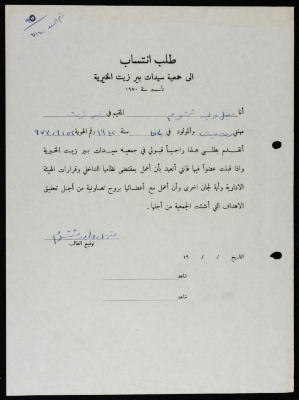 ٩٥
طلب انتساب
الى جمعية سيدات بير زيت الخيرية
تأسست سنة ١٩٧٠
أنا المقيم في بير زيت
مهنتي ربة بيت والمولود في يافا سنة ١٩٤٢ رقم الهوية
أتقدم بطلبي هذا راجياً قبولي في جمعية سيدات بير زيت الخيرية
واذا قبلت عضواً فيها فاني أتعهد بأن أعمل بمقتضى نظامها الداخلي وقرارات الهيئة
الادارية وأية لجان اخرى وأن أعمل مع أعضائها بروح تعاونية من أجل تحقيق
الاهداف التي أنشئت الجمعية من أجلها .
توقيع الطالب
التاريخ / / ١٩
شاهد
شاهد